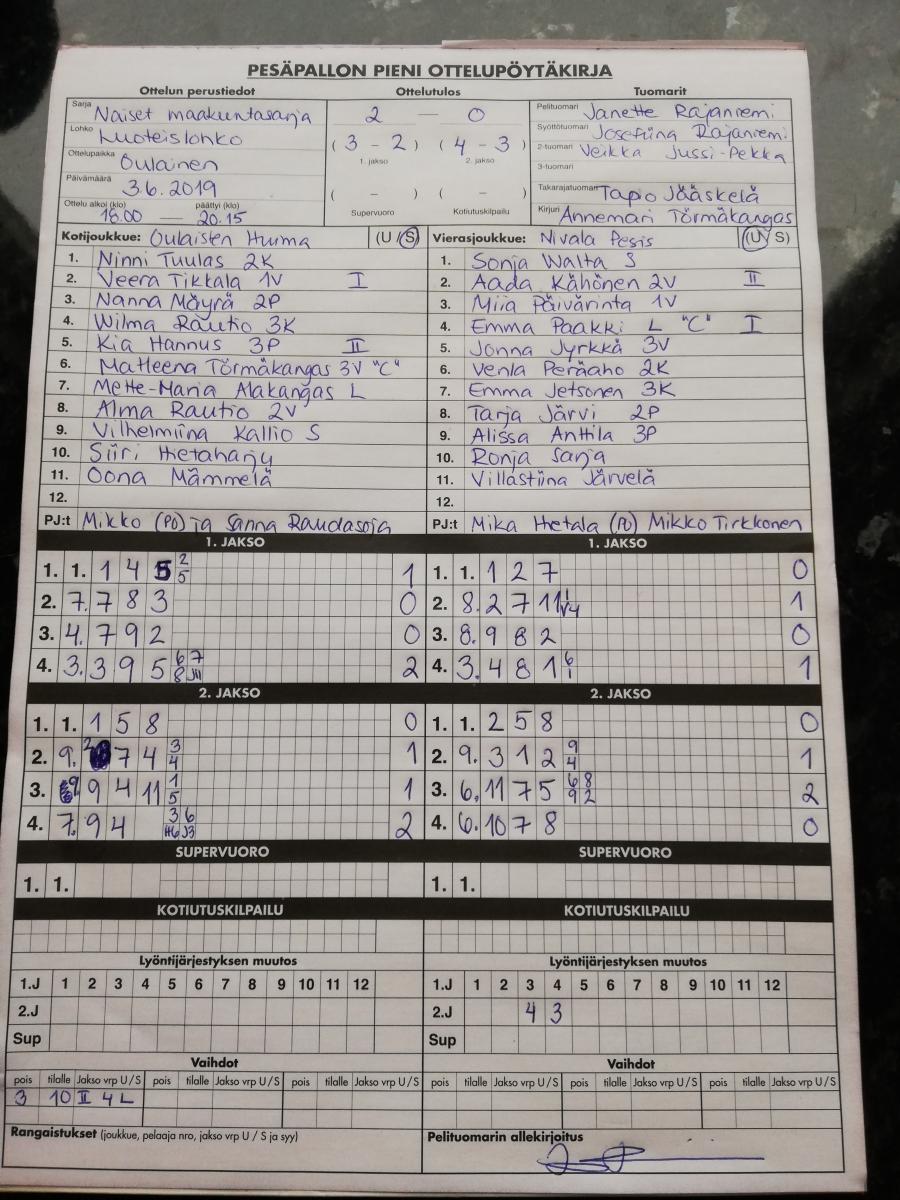 PESÄPALLON PIENI OTTELUPÖYTÄKIRJA
Ottelun perustiedot Ottelutulos Tuomarit
Sarja Naiset maakuntasarja
Lohko Luoteislohko
Ottelupaikka Oulainen
Päivämäärä 3.6.2019
Ottelu alkoi (klo) päättyi (klo)
18.00 — 20.15
2 — 0
( 3 - 2 ) ( 4 - 3 )
1. jakso 2. jakso
( - ) ( - )
Supervuoro Kotiutuskilpailu
Pelituomari Janette Rajaniemi
Syöttötuomari Josefiina Rajaniemi
2-tuomari Veikka Jussi-Pekka
3-tuomari
Takarajatuomari Tapio Jääskelä
Kirjuri Annemari Törmäkangas
Kotijoukkue: Oulaisten Huima (U / S)
1. Ninni Tuulas 2K
2. Veera Tikkala 1V I
3. Nanna Mäyrä 2P
4. Wilma Rautio 3K
5. Kia Hannus 3P II
6. Matleena Törmäkangas 3V "C"
7. Mette-Maria Alakangas L
8. Alma Rautio 2V
9. Vilhelmiina Kallio S
10. Siiri Hietaharju
11. Oona Mämmelä
12.
PJ:t Mikko (PO) ja Sanna Raudasoja
Vierasjoukkue: Nivala Pesis (U / S)
1. Sonja Walta S
2. Aada Kähönen 2V II
3. Miia Päivärinta 1V
4. Emma Paakki L "C" I
5. Jonna Jyrkkä 3V
6. Venla Peräaho 2K
7. Emma Jetsonen 3K
8. Tarja Järvi 2P
9. Alissa Anttila 3P
10. Ronja Sarja
11. Villastiina Järvelä
12.
PJ:t Mika Hietala (PO) Mikko Tirkkonen
1. JAKSO 1. JAKSO
1. 1. 1 4 5 2 5 1
2. 7. 7 8 3 0
3. 4. 7 9 2 0
4. 3. 3 9 5 6 7 8 JII 2
1. 1. 1 2 7 0
2. 8. 2 7 11 1 V4 1
3. 8. 9 8 2 0
4. 3. 4 8 1 6 1 1
2. JAKSO 2. JAKSO
1. 1. 1 5 8 0
2. 9. 2 7 4 3 4 1
3. 9. 9 4 11 1 5 1
4. 7. 9 4 3 6 H6 J3 2
1. 1. 2 5 8 0
2. 9. 3 1 2 9 4 1
3. 6. 11 7 5 6 8 9 2 2
4. 6. 10 7 8 0
SUPERVUORO SUPERVUORO
1. 1. 1. 1.
KOTIUTUSKILPAILU KOTIUTUSKILPAILU
Lyöntijärjestyksen muutos Lyöntijärjestyksen muutos
1.J 1 2 3 4 5 6 7 8 9 10 11 12 1.J 1 2 3 4 5 6 7 8 9 10 11 12
2.J 2.J 4 3
Sup Sup
Vaihdot Vaihdot
pois tilalle Jakso vrp U/S pois tilalle Jakso vrp U/S pois tilalle Jakso vrp U/S pois tilalle Jakso vrp U/S pois tilalle Jakso vrp U/S pois tilalle Jakso vrp U/S
3 10 II 4 L
Rangaistukset (joukkue, pelaaja nro, jakso vrp U / S ja syy) Pelituomarin allekirjoitus